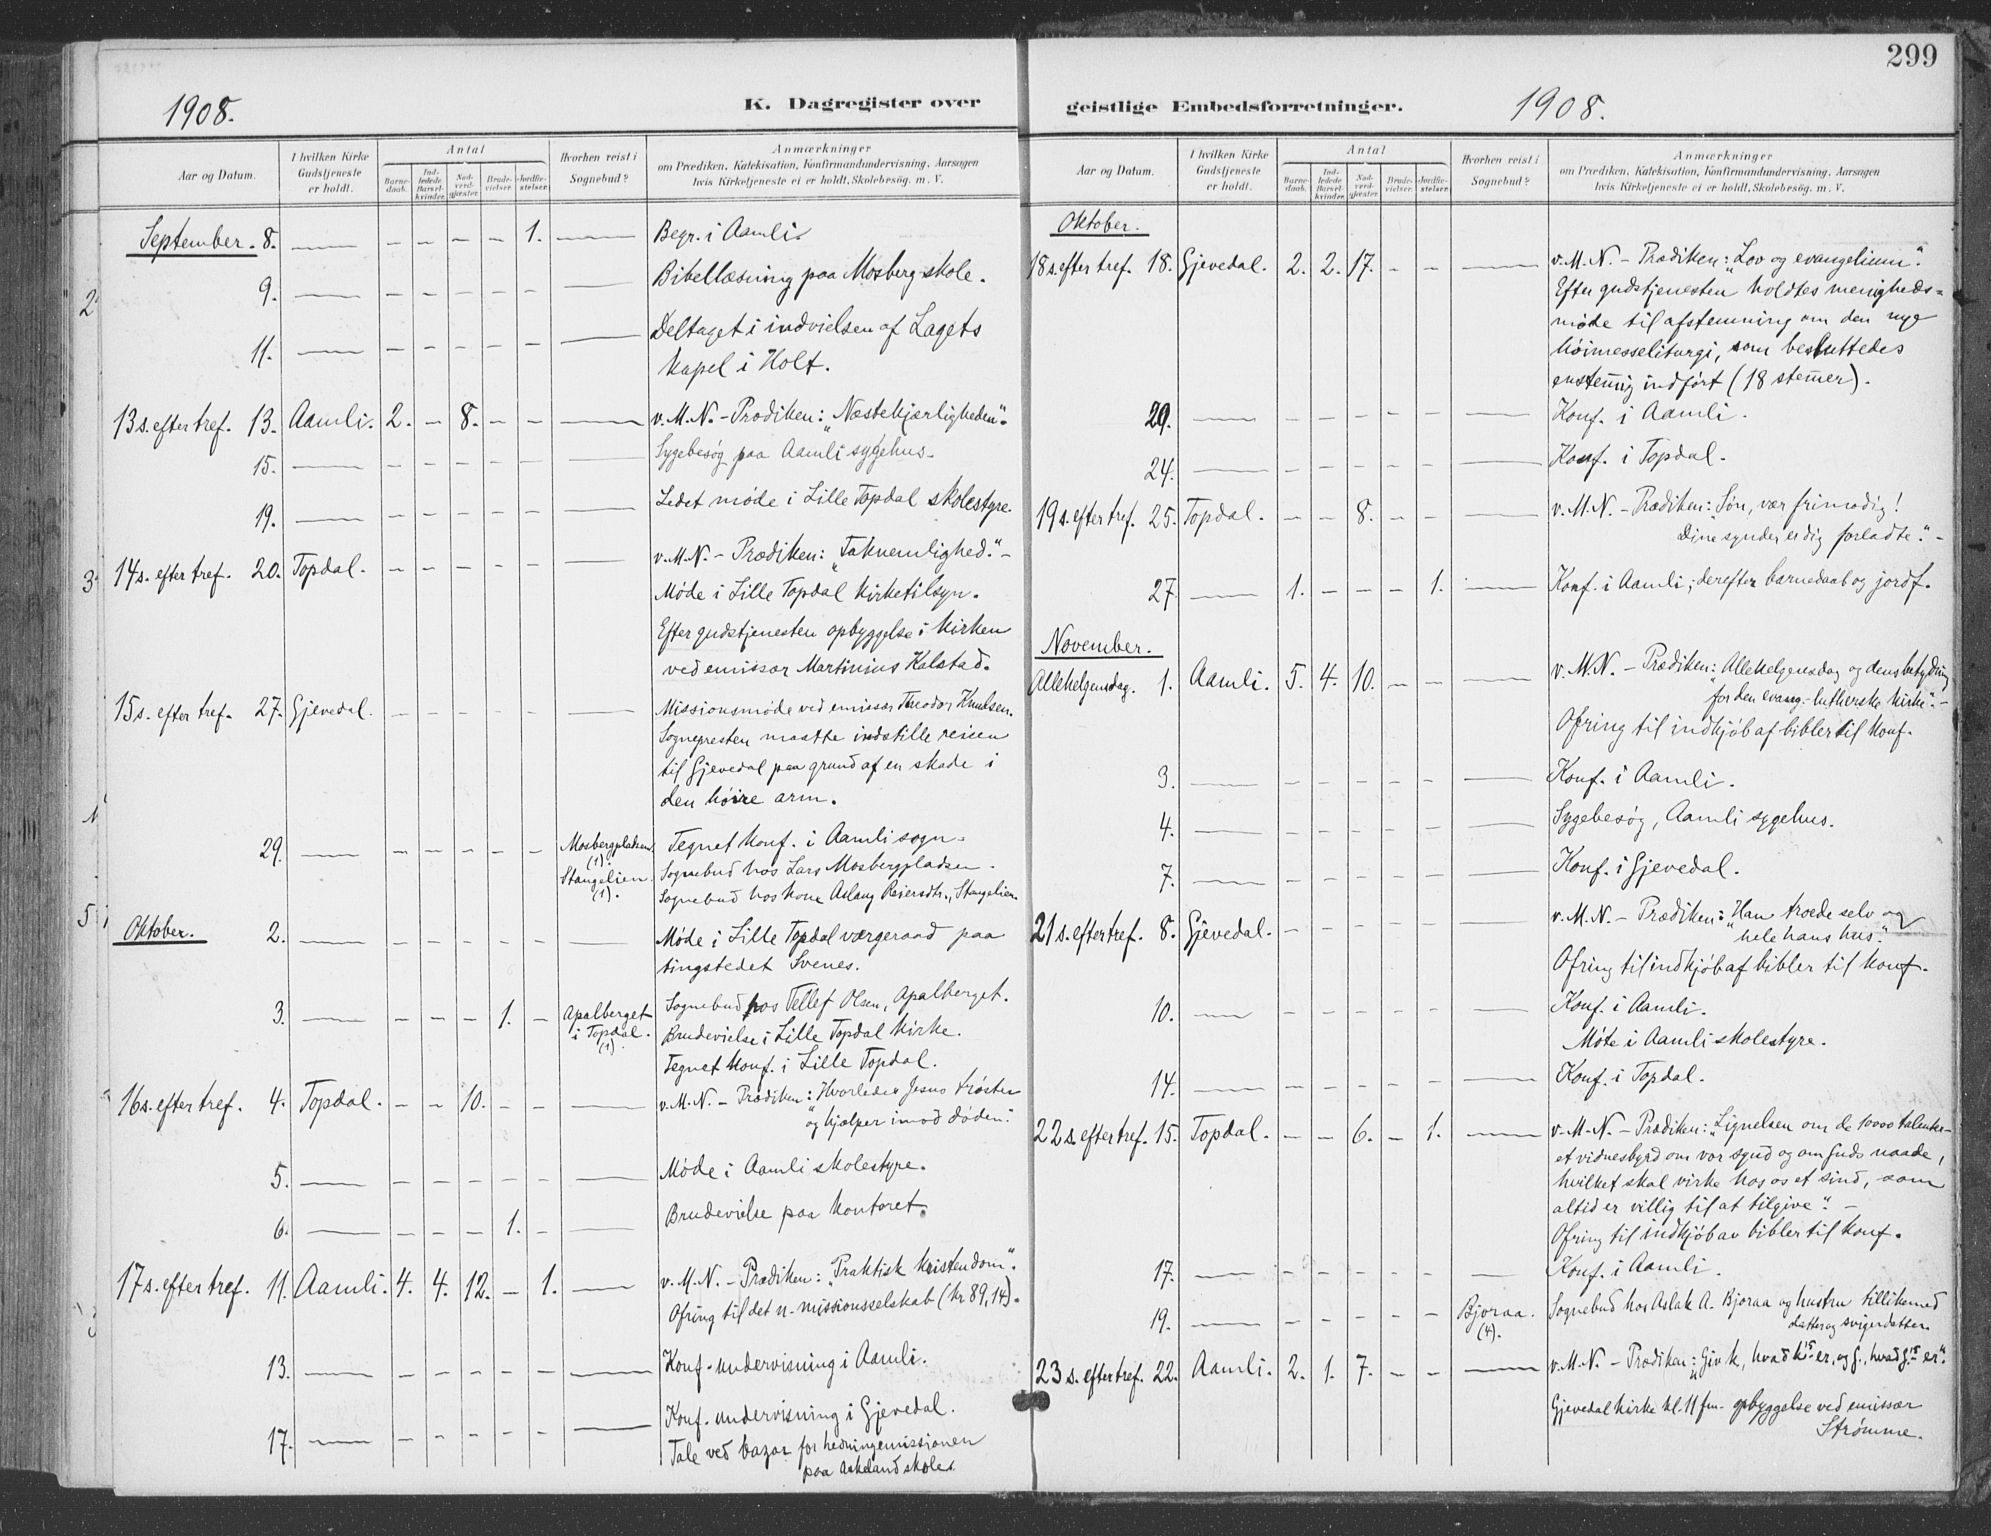 299
1908.
K. Dagregister over
Aar og Datum.
I hvilken Kirke Gudstjeneste er holdt.
Antal
Barnedaab.
Indledede Barselkvinder.
Nadverdgjester.
Brudevielser.
Jordfæstelser.
Hvorhen reist i Sognebud?
Anmærkninger
om Prædiken, Katekisation, Konfirmandundervisning, Aarsagen
hvis Kirketjeneste ei er holdt, Skolebesøg. m. V.
September. 8. — — — — — 1. — Begr. i Aamli.
9. — — — — — — — Bibellæsning paa Mosberg skole.
11. — — — — — — — Deltaget i indvielsen af Lagets
kapel i Holt.
13 s. efter tref. 13. Aamli. 2. — 8. — — — v. M. N. – Prædiken: „Næstekjærligheden“.
15. — — — — — — — Sygebesøg paa Aamli sygehus.
19. — — — — — — — Ledet møde i Lille Topdal skolestyre.
14 s. efter tref. 20. Topdal. — — — — — — v. M. N. – Prædiken: „Taknemlighed.“ –
Møde i Lille Topdal kirketilsyn.
Efter gudstjenesten opbyggelse i kirken
ved emissær Martinius Kalstad.
15 s. efter tref. 27. Gjevedal. — — — — — — Missionsmøde ved emissær Theodor Knudsen.
Sognepresten maatte indstille reisen
til Gjevedal paa grund af en skade i
den høire arm.
29. — — — — — — Mosbergpladsen (1). Stangelien. (1). Tegnet konf. i Aamli sogn.
Sognebud hos Lars Mosbergpladsen.
Sognebud hos kone Aslaug Reiersdtr., Stangelien.
Oktober. 2. — — — — — — — Møde i Lille Topdal værgeraad paa
tingstedet Svenes.
3. — — — — 1. — Apalberget i Topdal. (1) Sognebud hos Tellef Olsen, Apalberget.
Brudevielse i Lille Topdal kirke.
Tegnet konf. i Lille Topdal.
16 s. efter tref. 4. Topdal. — — 10. — — — v. M. N. – Prædiken: „Hvorledes Jesus trøster
og hjælper imod døden“.
5. — — — — — — — Møde i Aamli skolestyre.
6. — — — — 1. — — Brudevielse paa kontoret.
17 s. efter tref. 11. Aamli. 4. 4. 12. — 1. — v. M. N. – Prædiken: „Praktisk kristendom“.
Ofring til det n. missionsselskab (kr 89,14).
13. — — — — — — — Konf.-undervisning i Aamli.
17. — — — — — — — Konf.-undervisning i Gjevedal.
Tale ved bazar for hedningemissionen
paa Askeland skole.
geistlige Embedsforretninger.
1908.
Aar og Datum.
I hvilken Kirke Gudstjeneste er holdt.
Antal
Barnedaab.
Indledede Barselkvinder.
Nadverdgjester.
Brudevielser.
Jordfæstelser.
Hvorhen reist i Sognebud?
Anmærkninger
om Prædiken, Katekisation, Konfirmandundervisning, Aarsagen
hvis Kirketjeneste ei er holdt, Skolebesøg. m. V.
Oktober.
18 s. efter tref. 18. Gjevedal. 2. 2. 17. — — — v. M. N. – Prædiken: „Lov og evangelium“.
Efter gudstjenesten holdtes menigheds=
møde til afstemning om den nye
høimesseliturgi, som besluttedes
enstemig indført (18 stemer).
20. — — — — — — — Konf. i Aamli.
24. — — — — — — — Konf. i Topdal.
19 s. efter tref. 25. Topdal. — — 8. — — — v. M. N. – Prædiken: „Søn, vær frimodig!
Dine synder er dig forladte“. –
27. — 1. — — — 1. — Konf. i Aamli; derefter barnedaab og jordf.
November.
Allehelgensdag. 1. Aamli. 5. 4. 10. — — — v. M. N. – Prædiken: „Allehelgensdag og dens betydning
for den evang.-lutherske kirke“. –
Ofring til indkjøb af bibler til konf.
3. — — — — — — — Konf. i Aamli.
4. — — — — — — — Sygebesøg, Aamli sygehus.
7. — — — — — — — Konf. i Gjevedal.
21 s. efter tref. 8. Gjevedal. — — — — — — v. M. N. – Prædiken: „Han troede selv og
hele hans hus“.
Ofring til indkjøb af bibler til konf.
10. — — — — — — — Konf. i Aamli.
Møte i Aamli skolestyre.
14. — — — — — — — Konf. i Topdal.
22 s. efter tref. 15. Topdal. — — 6. — 1. — v. M. N. – Prædiken: „Lignelsen om de 10000 talenter
et vidnesbyrd om vor synd og om Guds naade,
hvilket skal virke hos os et sind, som
altid er villig til at tilgive“. –
Ofring til indkjøb av bibler til konf.
17. — — — — — — — Konf. i Aamli.
19. — — — — — — Bjoraa. (4). Sognebud hos Aslak A. Bjoraa og hustru tillikemed
datter og svigerdatter.
23 s. efter tref. 22. Aamli. 2. 1. 7. — — — v. M. N. – Prædiken: „Giv k, hvad k's er, og G., hvad G's er“.
Gjevedal kirke kl. 11 fm. opbyggelse ved emissær
Strømme.